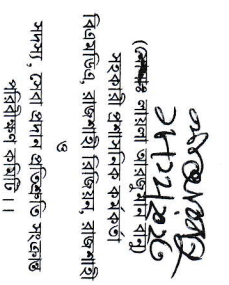 (মোছাঃ লায়লা আরজুমান বানু)
সহকারী প্রশাসনিক কর্মকর্তা
বিএমডিএ, রাজশাহী রিজিয়ন, রাজশাহী
ও
সদস্য, সেবা প্রদান প্রতিশ্রুতি সংক্রান্ত
পরিবীক্ষণ কমিটি ।।